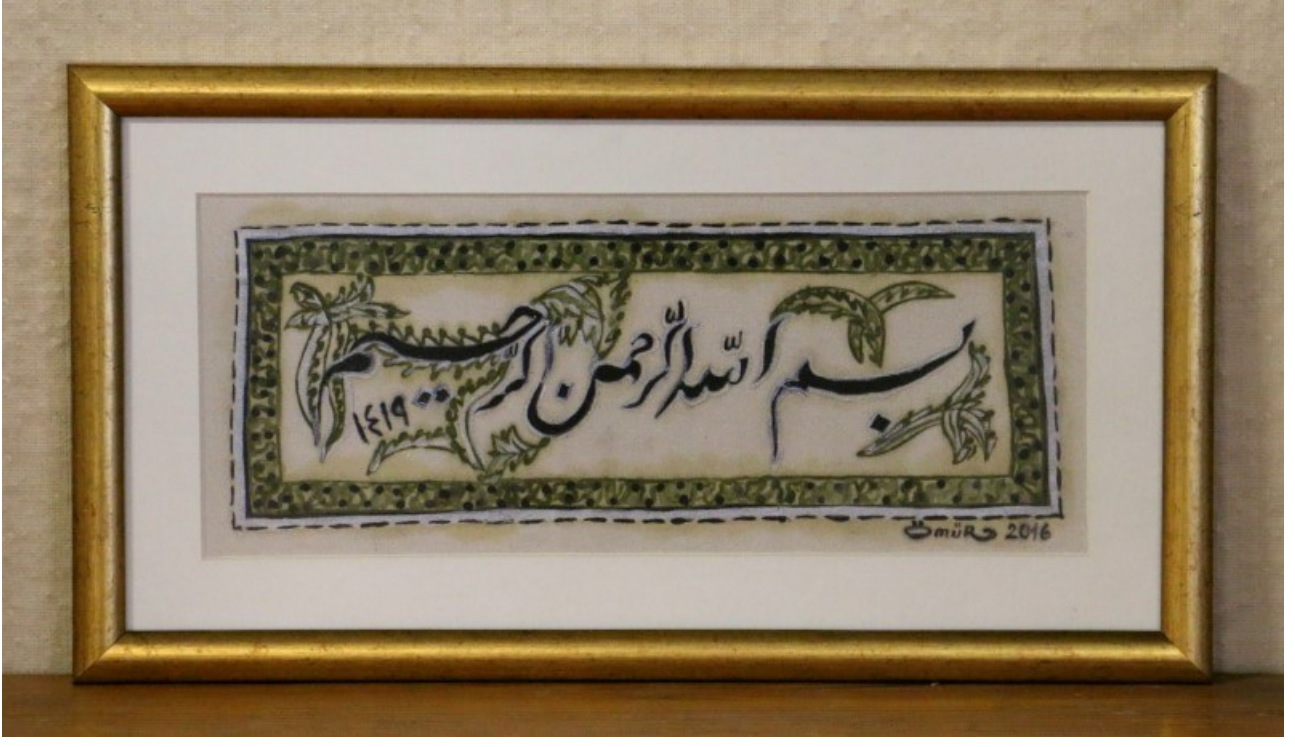 بسم الله الرحمن الرحيم
١٤١٩
ÖMÜR 2016